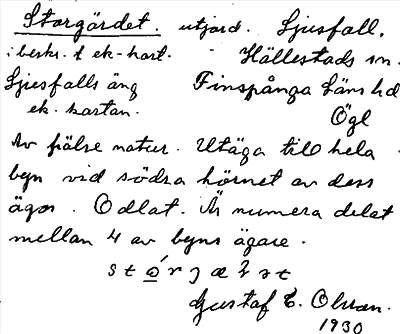 Storgärdet. utjord. Ljusfall.
i beskr. t ek-kart. Hällestads sn.
Ljusfalls äng Finspånga Läns hd
ek. kartan. Ögl
Av frälse natur. Utäga till hela
byn vid södra hörnet av dess
ägor. Odlat. Är numera delat
mellan 4 av byns ägare.
Gustaf E. Olsson.
1930